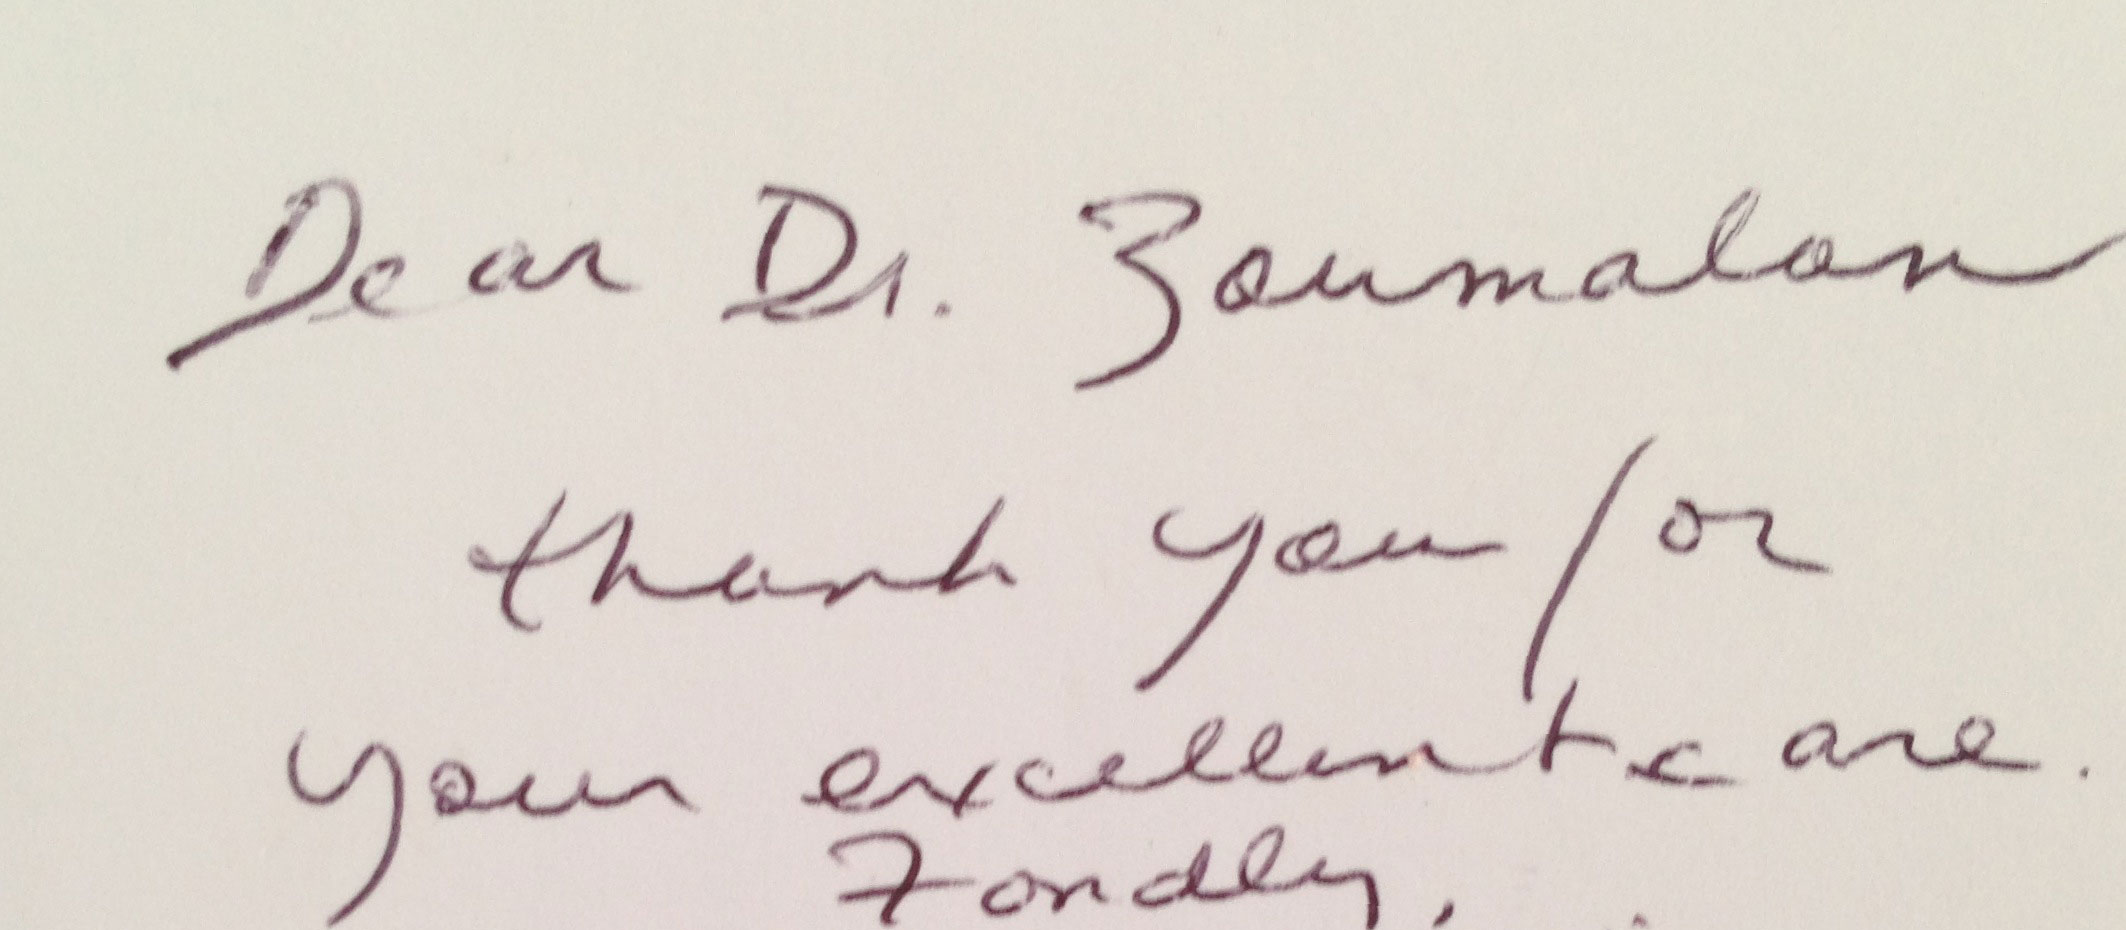 Dear Dr. Zoumalan
thank you for
your excellent care.
Fondly,